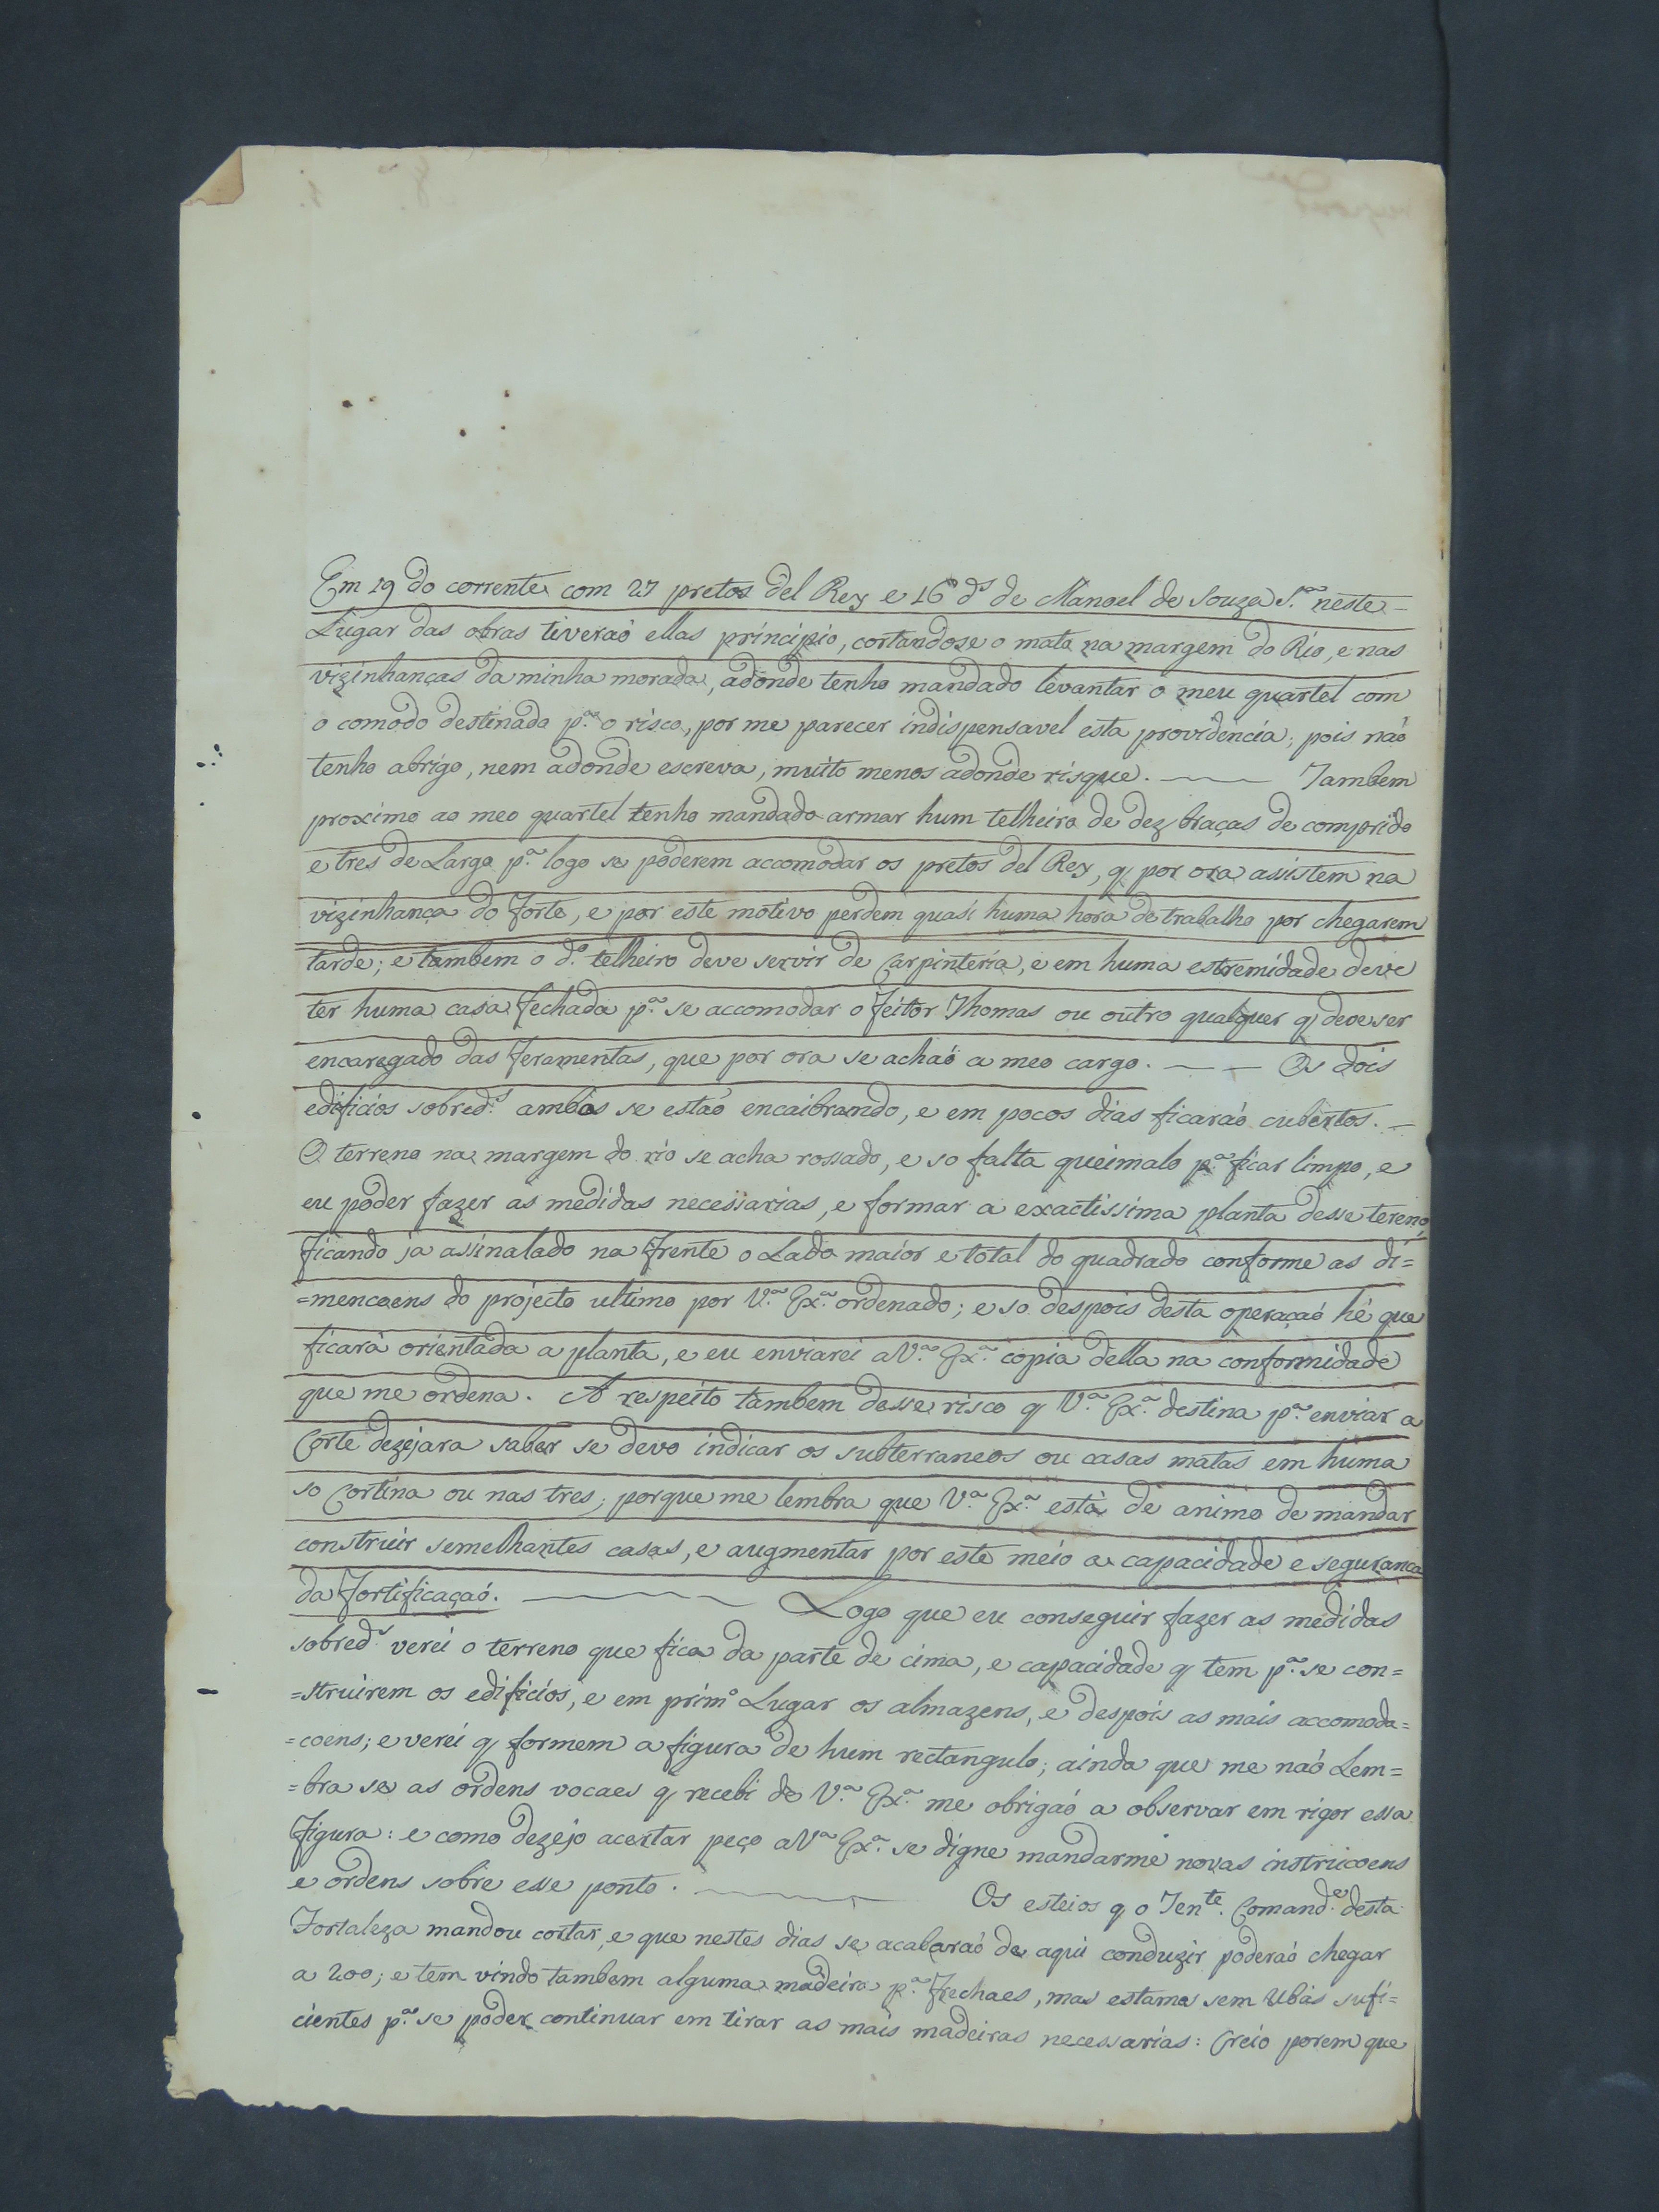 Em 19 do corrente com 27 pretos del Rey e 16 d.s de Manoel de Souza S.a neste
Lugar das obras tiveraó ellas principio, cortandose o mato na margem do Rio, e nas
vizinhanças da minha morada, adonde tenho mandado levantar o meu quartel com
o comodo destinado p.a o risco, por me parecer indispensavel esta providencia; pois naó
tenho abrigo, nem adonde escreva, muito menos adonde risque. —— Tambem
proximo ao meo quartel tenho mandado armar hum telheiro de dez braças de comprido
e tres de Largo p.a logo se poderem accomodar os pretos del Rey, q por ora assistem na
vizinhança do Forte, e por este motivo perdem quasi huma hora de trabalho por chegarem
tarde; e tambem o d.o telheiro deve servir de Carpinteria, e em huma estremidade deve
ter huma casa fechada p.a se accomodar o Feitor Thomas ou outro qualquer q deve ser
encaregado das Feramentas, que por ora se achaó a meo cargo. —— Os dois
edificios sobred.s ambos se estaó encaibrando, e em pocos dias ficaraó cubertos. —
O terreno na margem do rio se acha rossado, e so falta queimalo p.a ficar limpo, e
eu poder fazer as medidas necessarias, e formar a exactissima planta desse tereno,
ficando ja assinalado na Frente o Lado maior e total do quadrado conforme as di=
=mencoens do projecto ultimo por V.a Ex.a ordenado; e so despois desta operaçaó hé que
ficará orientada a planta, e eu enviarei a V.a Ex.a copia della na conformidade
que me ordena. A respeito tambem desse risco q V.a Ex.a destina p.a enviar a
Corte dezejara saber se devo indicar os subterraneos ou casas matas em huma
so Cortina ou nas tres; porque me lembra que V.a Ex.a está de animo de mandar
construir semelhantes casas, e augmentar por este meio a capacidade e seguranca
da Fortificaçaó. —— Logo que eu conseguir fazer as medidas
sobred.s verei o terreno que fica da parte de cima, e capacidade q tem p.a se con=
=struirem os edificios, e em prim.o Lugar os almazens, e despois as mais accomoda=
=coens; e verei q formem a figura de hum rectangulo; ainda que me naó Lem=
=bra se as ordens vocaes q recebi de V.a Ex.a me obrigaó a observar em rigor essa
Figura: e como dezejo acertar peço a V.a Ex.a se digne mandarme novas instruicoens
e ordens sobre esse ponto. —— Os esteios q o Ten.te Comand.e desta
Fortaleza mandou cortar, e que nestes dias se acabaraó de aqui conduzir poderaó chegar
a 200; e tem vindo tambem alguma madeira p.a Frechaes, mas estamos sem Ubás sufi=
cientes p.a se poder continuar em tirar as mais madeiras necessarias: Creio porem que